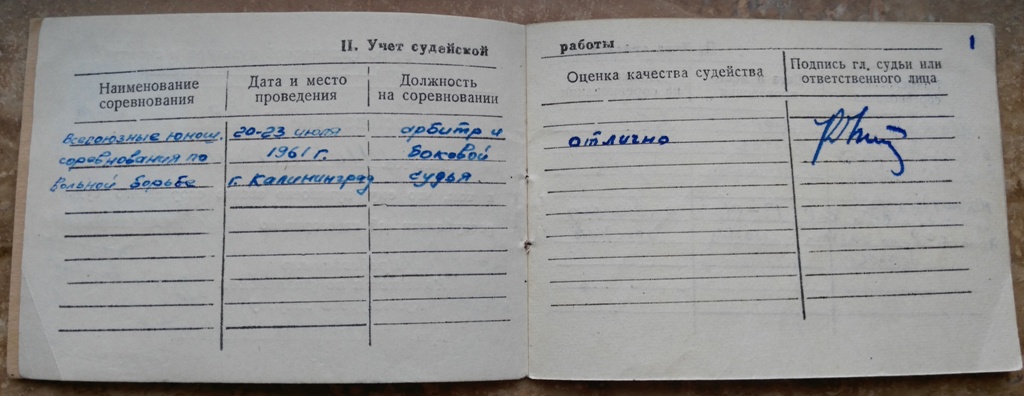 II. Учет судейской работы
1
Наименование соревнования
Дата и место проведения
Должность на соревновании
Оценка качества судейства
Подпись гл. судьи или ответственного лица
Всесоюзные юнош. 20-23 июля арбитр и
соревнования по 1961 г. боковой
вольной борьбе г. Калининград судья.
отлично